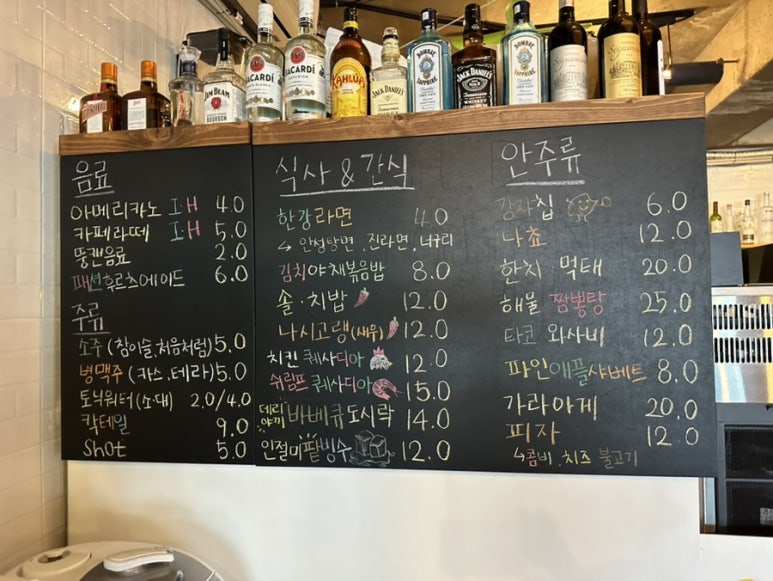 BACARDÍ
BACARDÍ
KAHLÚA
JACK DANIEL'S
BOMBAY
SAPPHIRE
JACK DANIEL'S
BOMBAY
SAPPHIRE
JIM BEAM
음료
아메리카노 I·H 4.0
카페라떼 I·H 5.0
뚱캔음료 2.0
패션후르츠에이드 6.0
주류
소주 (참이슬,처음처럼) 5.0
병맥주 (카스.테라) 5.0
토닉워터 (소·대) 2.0/4.0
칵테일 9.0
Shot 5.0
식사 & 간식
한강라면 4.0
↳ 안성탕면.진라면.너구리
김치야채볶음밥 8.0
솥·치밥 12.0
나시고랭(새우) 12.0
치킨 퀘사디아 12.0
쉬림프 퀘사디아 15.0
데리야끼 바베큐도시락 14.0
인절미팥빙수 12.0
안주류
감자칩 6.0
나쵸 12.0
한치·먹태 20.0
해물 짬뽕탕 25.0
타코 와사비 12.0
파인애플샤베트 8.0
가라아게 20.0
피자 12.0
↳콤비.치즈 불고기